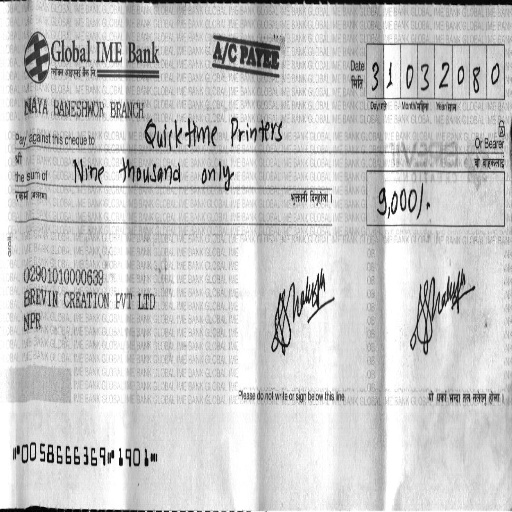 Global IME Bank
ग्लोबल आइएमई बैंक लि
A/C PAYEE
Date
मिति
3 1 0 3 2 0 8 0
Day/गते Month/महिना Year/साल
NAYA BANESHWOR BRANCH
Pay against this cheque to Quicktime Printers
Or Bearer
श्री
वा वाहकलाई
the sum of Nine thousand only
रकम
भुक्तानी दिनुहोला ।
9,000/.
02901010000639
BREVIN CREATION PVT LTD
NPR
Please do not write or sign below this line
यो धर्का भन्दा तल नलेख्नु होला ।
⑈0058666369⑈1901⑈